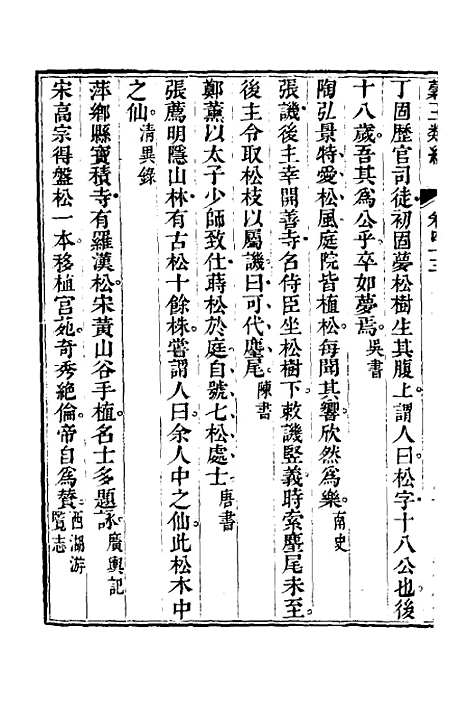 丁固歷官司徒初固夢松樹生其腹上謂人曰松字十八公也後
十八歲吾其為公乎卒如夢焉吳書
陶弘景特愛松風庭院皆植松每聞其響欣然為樂南史
張譏後主幸開善寺名侍臣坐松樹下敕譏竪義時索麈尾未至
後主令取松枝以屬譏曰可代麈尾陳書
鄭薰以太子少師致仕時松於庭自號七松處士唐書
張薦明隱山林有古松十餘株嘗謂人曰余人中之仙此松木中
之仙清異錄
萍鄉縣寶積寺有羅漢松宋黃山谷手植名士多題詠廣輿記
宋高宗得盤松一本移植宮苑奇秀絕倫帝自為贊西湖遊覽志